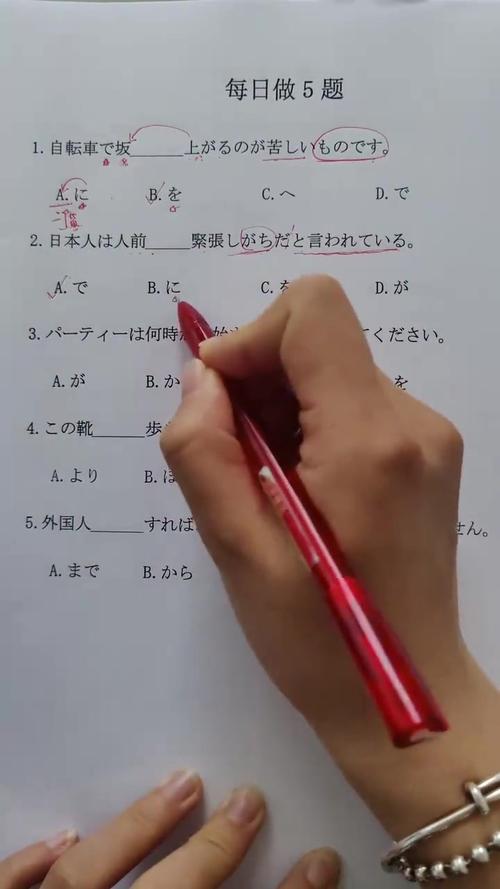 每日做5题
1.自転車で坂______上がるのが苦しいものです。
A.に B.を C.へ D.で
2.日本人は人前_____緊張しがちだと言われている。
A.で B.に C.を D.が
3.パーティーは何時 ください。
A.が B.か を
4.この靴______歩
A.より B.ほ
5.外国人______すれば せん。
A.まで B.から